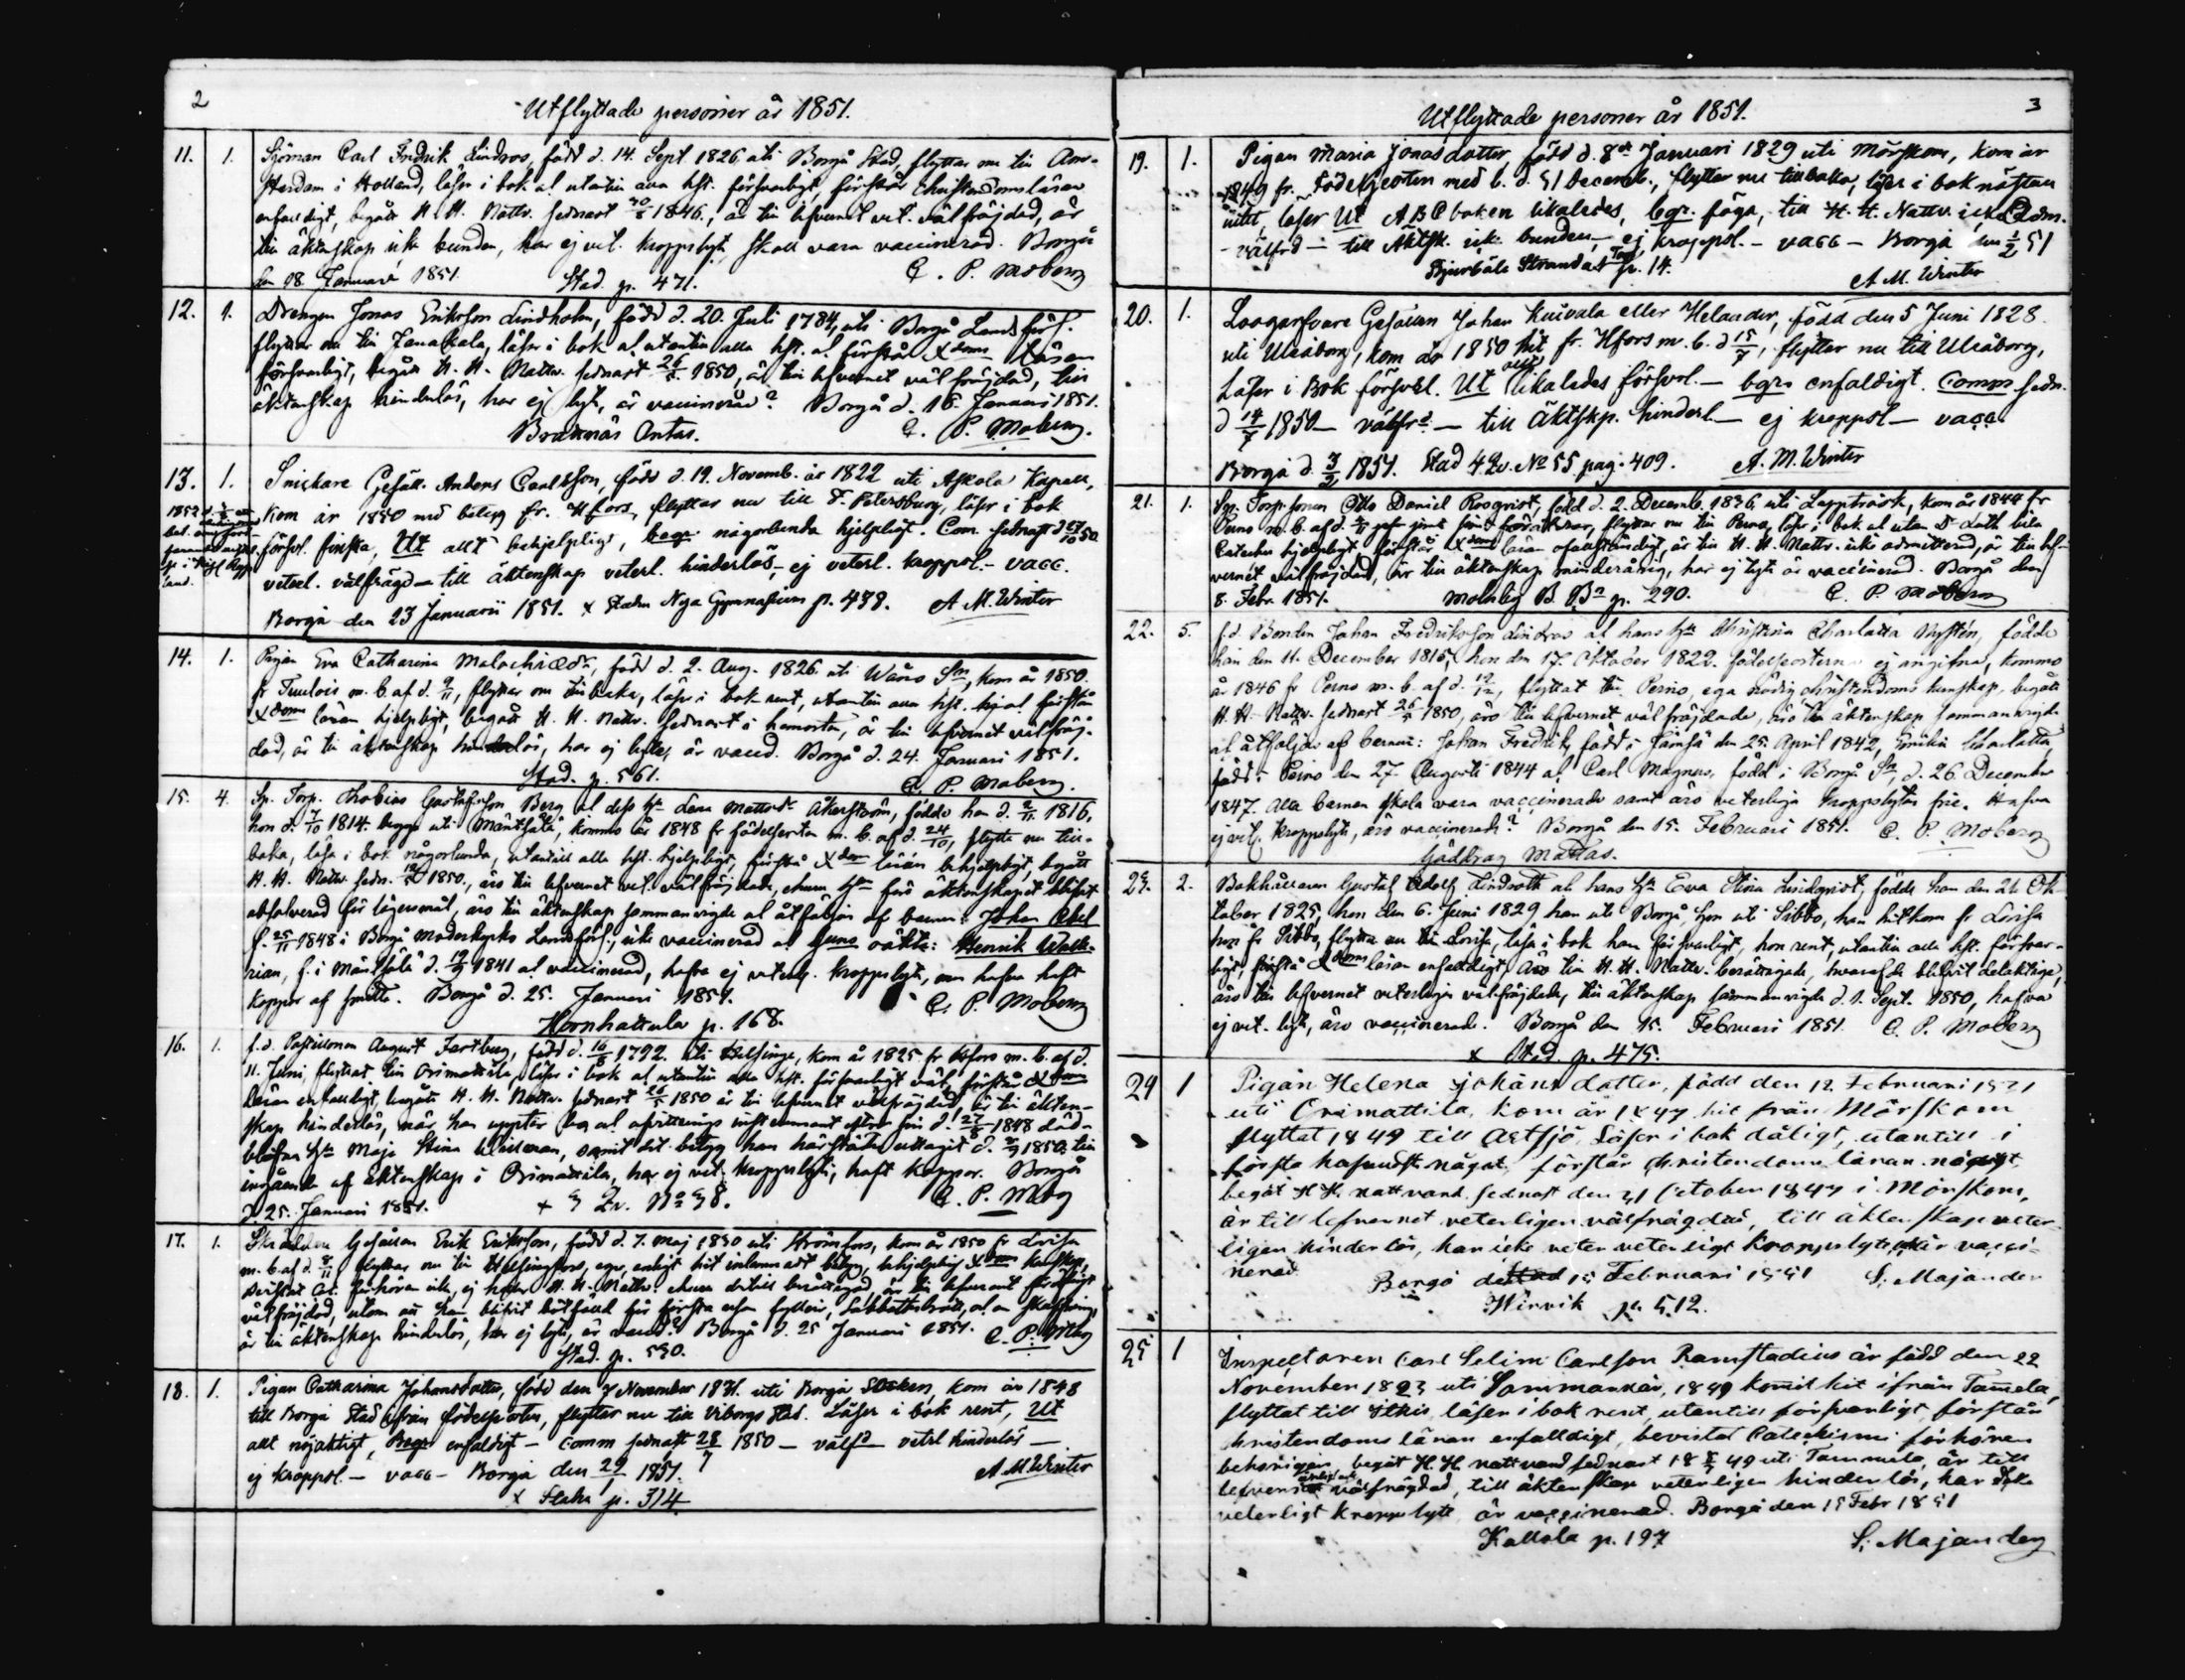 2
Utflyttade personer år 1851.
11. 1. Sjöman Carl Fredrik Lindroos, född d. 14. Sept 1826 uti Borgå Stad, flyttar nu till Am-
sterdam i Holland, läser i bok al utantill försvarligt, förstår Christendomsläran
enfaldigt, begått H. H. Nattv. sednast 1846, är till lefvernet vet. välfräjdad, är
till äktenskap icke bunden, har ej vet. kroppslyte, skall vara vaccinerad. Borgå
den 18. Januari 1851. Stad. p. 471. C. P. Moberg
12. 1. Drengen Jonas Eriksson Lindholm, född d. 20. Juli 1784, uti Borgå Landsförs.
flyttar nu till Janakala, läser i bok al utantill alla hst. al förstår Xdoms läran
försvarligt, begått H. H. Nattv. sednast 26/5 1850, är till lefvernet välfräjdad, till
äktenskap hinderlös, har ej lyte, är vaccinerad? Borgå d. 18. Januari 1851.
Braknäs Antas. C. P. Moberg.
13. 1. Snickare Gesäll. Anders Carlsson, född d. 19. Novemb. år 1822 uti Askola Kapell,
kom år 1850 med betyg fr. Hfors, flyttar nu till S. Petersburg, läser i bok
försvl. finska, Ut allt behjelpligt, begr någorlunda hjelpligt. Com. sednast
veterl. välfrägd - till äktenskap veterl. hinderlös, - ej veterl. kroppsl. - vacc.
Borgå den 23 Januarii 1851. x Staden Nya Gymnasium p. 438. A M. Winter
14. 1. Pigan Eva Catharina Malachiædr, född d. 2. Aug. 1826 uti Wåno Sn, kom år 1850.
fr Tuulois m. b. af d. 9/11, flyttar nu tillbaka, läser i bok rent, utantill förstår
Xdoms läran hjelpligt, begått H. H. Nattv. sednast i hemorten, är till lefvernet välfräj-
dad, är till äktenskap hinderlös, har ej lyte, är vaccd. Borgå d. 24. Januari 1851.
Stad. p. 561. C. P. Moberg.
15. 4. Sp. Torp. Thobias Gustafsson Berg al dess hu Lena Mattsdr Åkerström, födde han d. 2/11 1816,
hon d. 7/10 1814. begge uti Mäntsälä, kommo år 1848 fr födelseorten m. b. af d. 24/10, flytta nu till-
baka, läsa i bok någorlunda, utantill alla hst. hjelpligt, förstå Xdoms läran behjelpligt, begått
H. H. Nattv. sedn. 1850., äro till lefvernet vet. välfräjdade, ehuru hn före äktenskapet blifvit
absolverad för lägersmål, äro till äktenskap sammanvigde al åtföljas af barnen: Johan Abel
f. 25/11 1848 i Borgå Moderkyrko Landsförs., icke vaccinerad al hans oäkta: Henrik Walle-
rian, f. i Mäntsälä d. 19/9 1841 al vaccinerad, hafva ej veterl. kroppslyte, men hafva haft
koppor af smitta. Borgå d. 25. Januari 1851. C. P. Moberg
Hornhattula p. 168.
16. 1. f.d. Postillionen August Fastberg, född d. 16/8 1792. uti Helsinge, kom år 1825 fr Hfors m. b. af d.
11. Juni, flyttat till Orimattila, läser i bok al utantill alla hst. försvarligt väl, förstår Xdoms
läran enfaldigt, begått H. H. Nattv. sednast 26/5 1850 är till lefvernet välfräjdad, är till äkten-
skap hinderlös, när han uppter bevis af afvittrings instrument efter sin d. 1848 död-
blefna hu Maja Stina, samt det betyg han härstädes uttagit d. 1850, till
ingående af äktenskap i Orimattila, har ej vet. kroppslyte, haft koppor. Borgå
d. 25. Januari 1851. + 3 Qv. No 38. C. P. Mbg
17. 1. Skräddare Gesällen Erik Eriksson, född d. 7. Maj 1830 uti Strömfors, kom år 1850 fr Lovisa
m. b. af d. 8/11 flyttar nu till Helsingfors, eger, enligt hit inlemnadt betyg, behjelplig Xdoms kunskap,
välfräjdad, utom att han blifvit bötfälld för första resan fylleri, Sabbatsbrott
är till äktenskap hinderlös, har ej lyte, är vaccd? Borgå d. 25 Januari 1851. C. P. Mbg
Stad. p. 530.
18. 1. Pigan Catharina Johansdotter, född den 7 November 1831. uti Borgå Socken, kom år 1848
till Borgå Stad ifrån födelseorten, flyttar nu till Viborgs Stad. Läser i bok rent, Ut
allt nöjaktigt, Begr enfaldigt - Comm sednast 28/7 1850 - välfd - vetrl hinderlös -
ej kroppsl. - vacc - Borgå den 29/1 1851. A M Winter
x Staden p. 314
3
Utflyttade personer år 1851.
19. 1. Pigan Maria Jonasdotter, född d. 8de Januari 1829 uti Mörskom, kom år
1849 fr. Födelseorten med b. d. 31 Decemb., flyttar nu tillbaka, läser i bok nästan
intet, läser Ut ABC boken likaledes, begr. föga, till H. H. Nattv. icke Adm.
- välfrd - till Äktsk. icke bunden - ej kroppsl. - vacc - Borgå den 1/2 51
Bjurböle Strandas Torp p. 14. A. M. Winter
20. 1. Loogarfvare Gesällen Johan Kuivala eller Helander, född den 5 Juni 1828
uti Uleåborg, kom år 1850 hit fr. Hfors m. b. d 15/7, flyttar nu till Uleåborg,
Läser i Bok försvrl. Ut allt likaledes försvrl. - begr. enfaldigt. Comm sedn.
d 14/7 1850 - välfrd - till Äktskp. hinderl. - ej kroppsl - vacc.
Borgå d. 3/2 1851. Stad 4 Qv. No 55 pag. 409. A. M. Winter
21. 1. Sp. Torp.sonen Otto Daniel Roosqvist, född d. 2. Decemb. 1836, uti Lappträsk, kom år 1844 fr
Perno m. b. af d. jemte sina föräldrar, flyttar nu till Perno, läser i bok al utan Dr Luth. lilla
Cateches hjelpligt, förstår Xdoms läran ofullständigt, är till H. H. Nattv. icke admitterad, är till lef-
vernet välfräjdad, är till äktenskap minderårig, har ej lyte är vaccinerad. Borgå den
8. Febr. 1851. Molnby B. Bn p. 290. C. P. Moberg
22. 5. f.d. Bonden Johan Fredriksson Lindroos al hans hu Christina Charlotta Nystén, födde
han den 11. December 1816, hon den 17. Oktober 1822. födelseorterna ej angifna, kommo
år 1846 fr Perno m. b. af d. 19/12, flyttat till Perno, ega nödig christendoms kunskap, begått
H. H. Nattv. sednast 26/5 1850, äro till lefvernet välfräjdade, äro till äktenskap sammanvigde
al åtföljas af barnen: Johan Fredrik, född i Jämsä den 25. April 1842, Emilia Charlotta,
född i Perno den 27. Augusti 1844 al Carl Magnus, född i Borgå Sn, d. 26. December
1847. Alla barnen skola vara vaccinerade samt äro veterliga kroppslyten frie. Hafva
ej vet. kroppslyte, äro vaccinerade? Borgå den 15. Februari 1851. C. P. Moberg
Gäddrag Mattas.
23. 2. Bokhållaren Gustaf Adolf Lindroth al hans hu Eva Stina Lindqvist, födde han den 21 Ok-
tober 1825, hon den 6. Juni 1829 han uti Borgå, hon uti Sibbo, han hitkom fr Lovisa
hon fr Sibbo, flytta nu till Lovisa, läsa i bok han försvarligt, hon rent, utantill alla hst. försvar-
ligt, förstå Xdoms läran enfaldigt, äro till H. H. Nattv. berättigade, hvaraf de blifvit delaktige,
äro till lefvernet veterligen välfräjdade, till äktenskap sammanvigde d. 1. Sept. 1850, hafva
ej vet. lyte, äro vaccinerade. Borgå den 15. Februari 1851. C. P. Moberg
x Stad. p. 475.
24 1 Pigan Helena Johans dotter, född den 12 Februari 1821
uti Orimattila, kom år 1847 hit från Mörskom
flyttat 1849 till Artsjö, Läser i bok dåligt, utantill i
första hufvudst. något, förstår Christendoms läran något,
begåt H H. nattvard sednast den 31 October 1847 i Mörskom,
är till lefvernet veterligen välfrägdad, till äktenskap veter-
ligen hinderlös, har icke veterligt kroppslyte, är vacci-
nerad Borgå den 15 Februari 1851 S. Majander
Wirvik p. 512.
25 1 Inspectoren Carl Selim Carlson Ramstadius är född den 22
November 1823 uti Sammankär, 1849 komit hit ifrån Tammela,
flyttat till Ithis, läser i bok rent, utantill försvarligt, förstår
Christendoms läran enfalldigt, bevistat Catechismi förhören
behörigen, begåt H. H. nattvard sednast 18 49 uti Tammela, är till
lefvernet välfrägdad, till äktenskap veterligen hinderlös, har icke
veterligt kroppslyte är vaccinerad. Borgå den 15 Febr 1851
Kallola p. 197 S. Majander